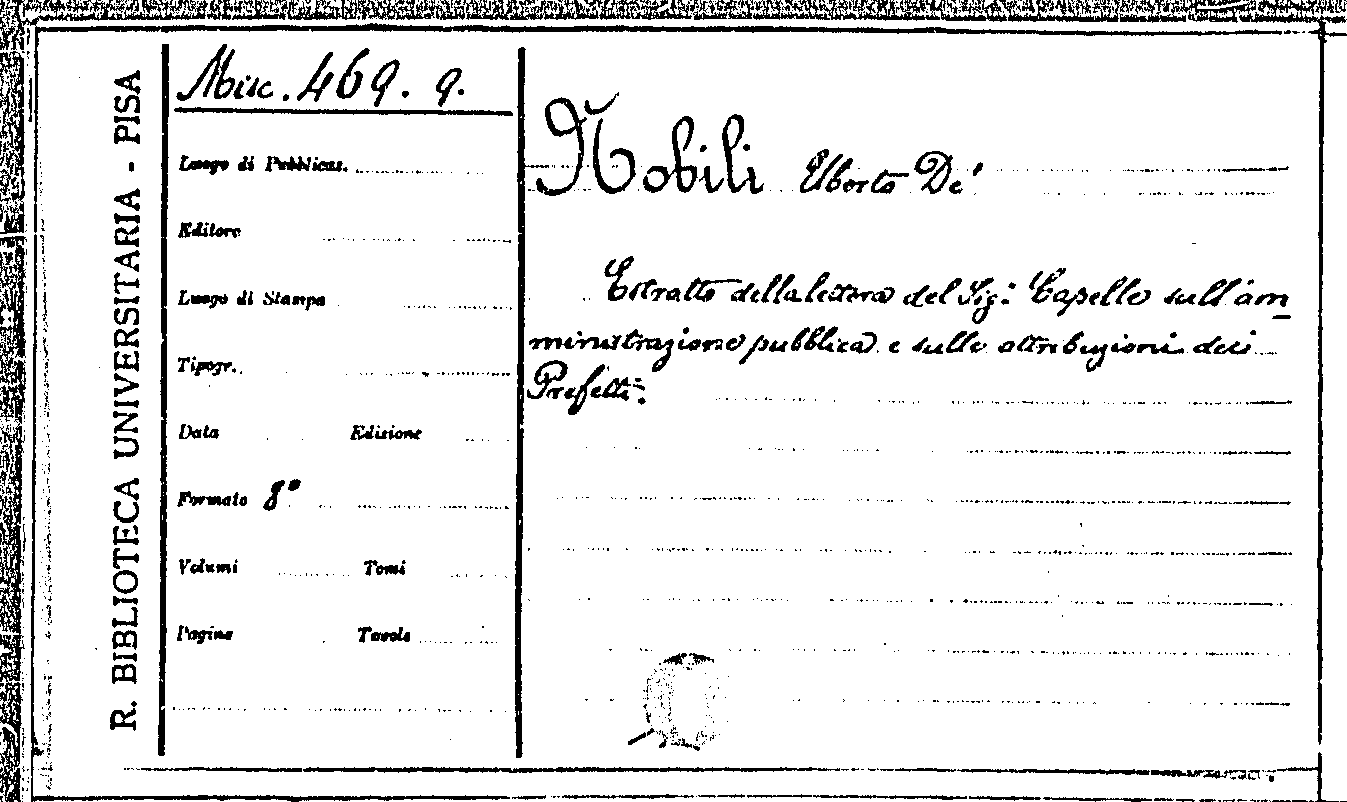 R. BIBLIOTECA UNIVERSITARIA - PISA
Misc. 469. 9.
Luogo di Pubblicaz.
Editore
Luogo di Stampa
Tipogr.
Data Edizione
Formato 8°
Volumi Tomi
Pagine Tavole
Nobili Uberto De'
Estratto della lettera del Sig: Capello sull'am
ministrazione pubblica e sulle attribuzioni dei
Prefetti.